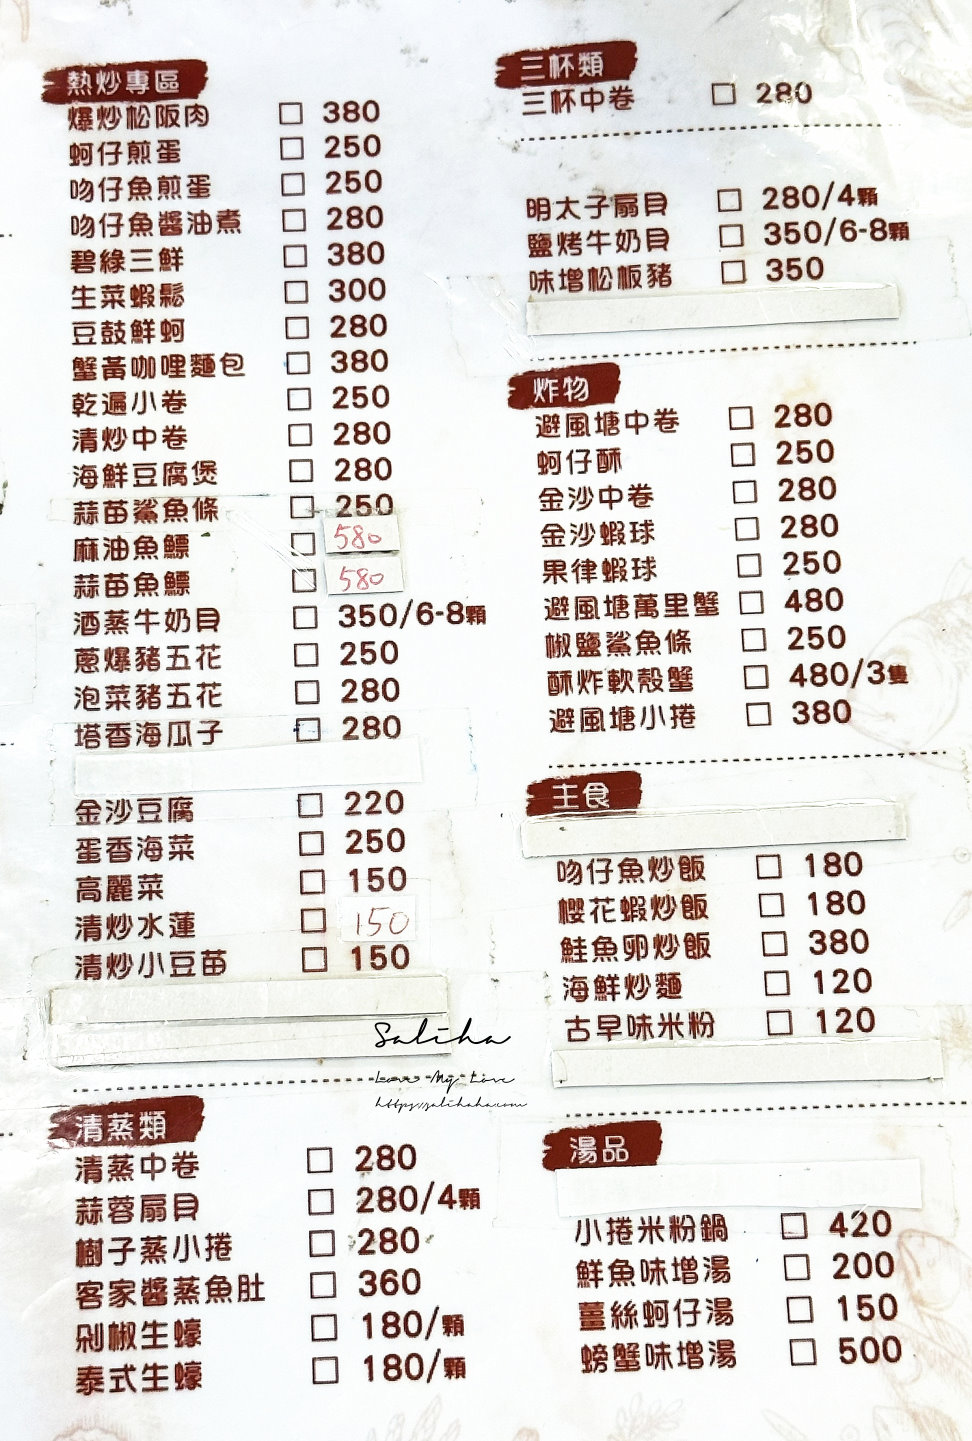 熱炒專區
爆炒松阪肉 □ 380
蚵仔煎蛋 □ 250
吻仔魚煎蛋 □ 250
吻仔魚醬油煮 □ 280
碧綠三鮮 □ 380
生菜蝦鬆 □ 300
豆鼓鮮蚵 □ 280
蟹黃咖哩麵包 □ 380
乾遍小卷 □ 250
清炒中卷 □ 280
海鮮豆腐煲 □ 280
蒜苗鯊魚條 □ 250
麻油魚鰾 □ 580
蒜苗魚鰾 □ 580
酒蒸牛奶貝 □ 350/6-8顆
蔥爆豬五花 □ 250
泡菜豬五花 □ 280
塔香海瓜子 □ 280
金沙豆腐 □ 220
蛋香海菜 □ 250
高麗菜 □ 150
清炒水蓮 □ 150
清炒小豆苗 □ 150
清蒸類
清蒸中卷 □ 280
蒜蓉扇貝 □ 280/4顆
樹子蒸小捲 □ 280
客家醬蒸魚肚 □ 360
剁椒生蠔 □ 180/顆
泰式生蠔 □ 180/顆
三杯類
三杯中卷 □ 280
明太子扇貝 □ 280/4顆
鹽烤牛奶貝 □ 350/6-8顆
味增松板豬 □ 350
炸物
避風塘中卷 □ 280
蚵仔酥 □ 250
金沙中卷 □ 280
金沙蝦球 □ 280
果律蝦球 □ 250
避風塘萬里蟹 □ 480
椒鹽鯊魚條 □ 250
酥炸軟殼蟹 □ 480/3隻
避風塘小捲 □ 380
主食
吻仔魚炒飯 □ 180
櫻花蝦炒飯 □ 180
鮭魚卵炒飯 □ 380
海鮮炒麵 □ 120
古早味米粉 □ 120
湯品
小捲米粉鍋 □ 420
鮮魚味增湯 □ 200
薑絲蚵仔湯 □ 150
螃蟹味增湯 □ 500
Saliha
Love My Love
https://salihaha.com